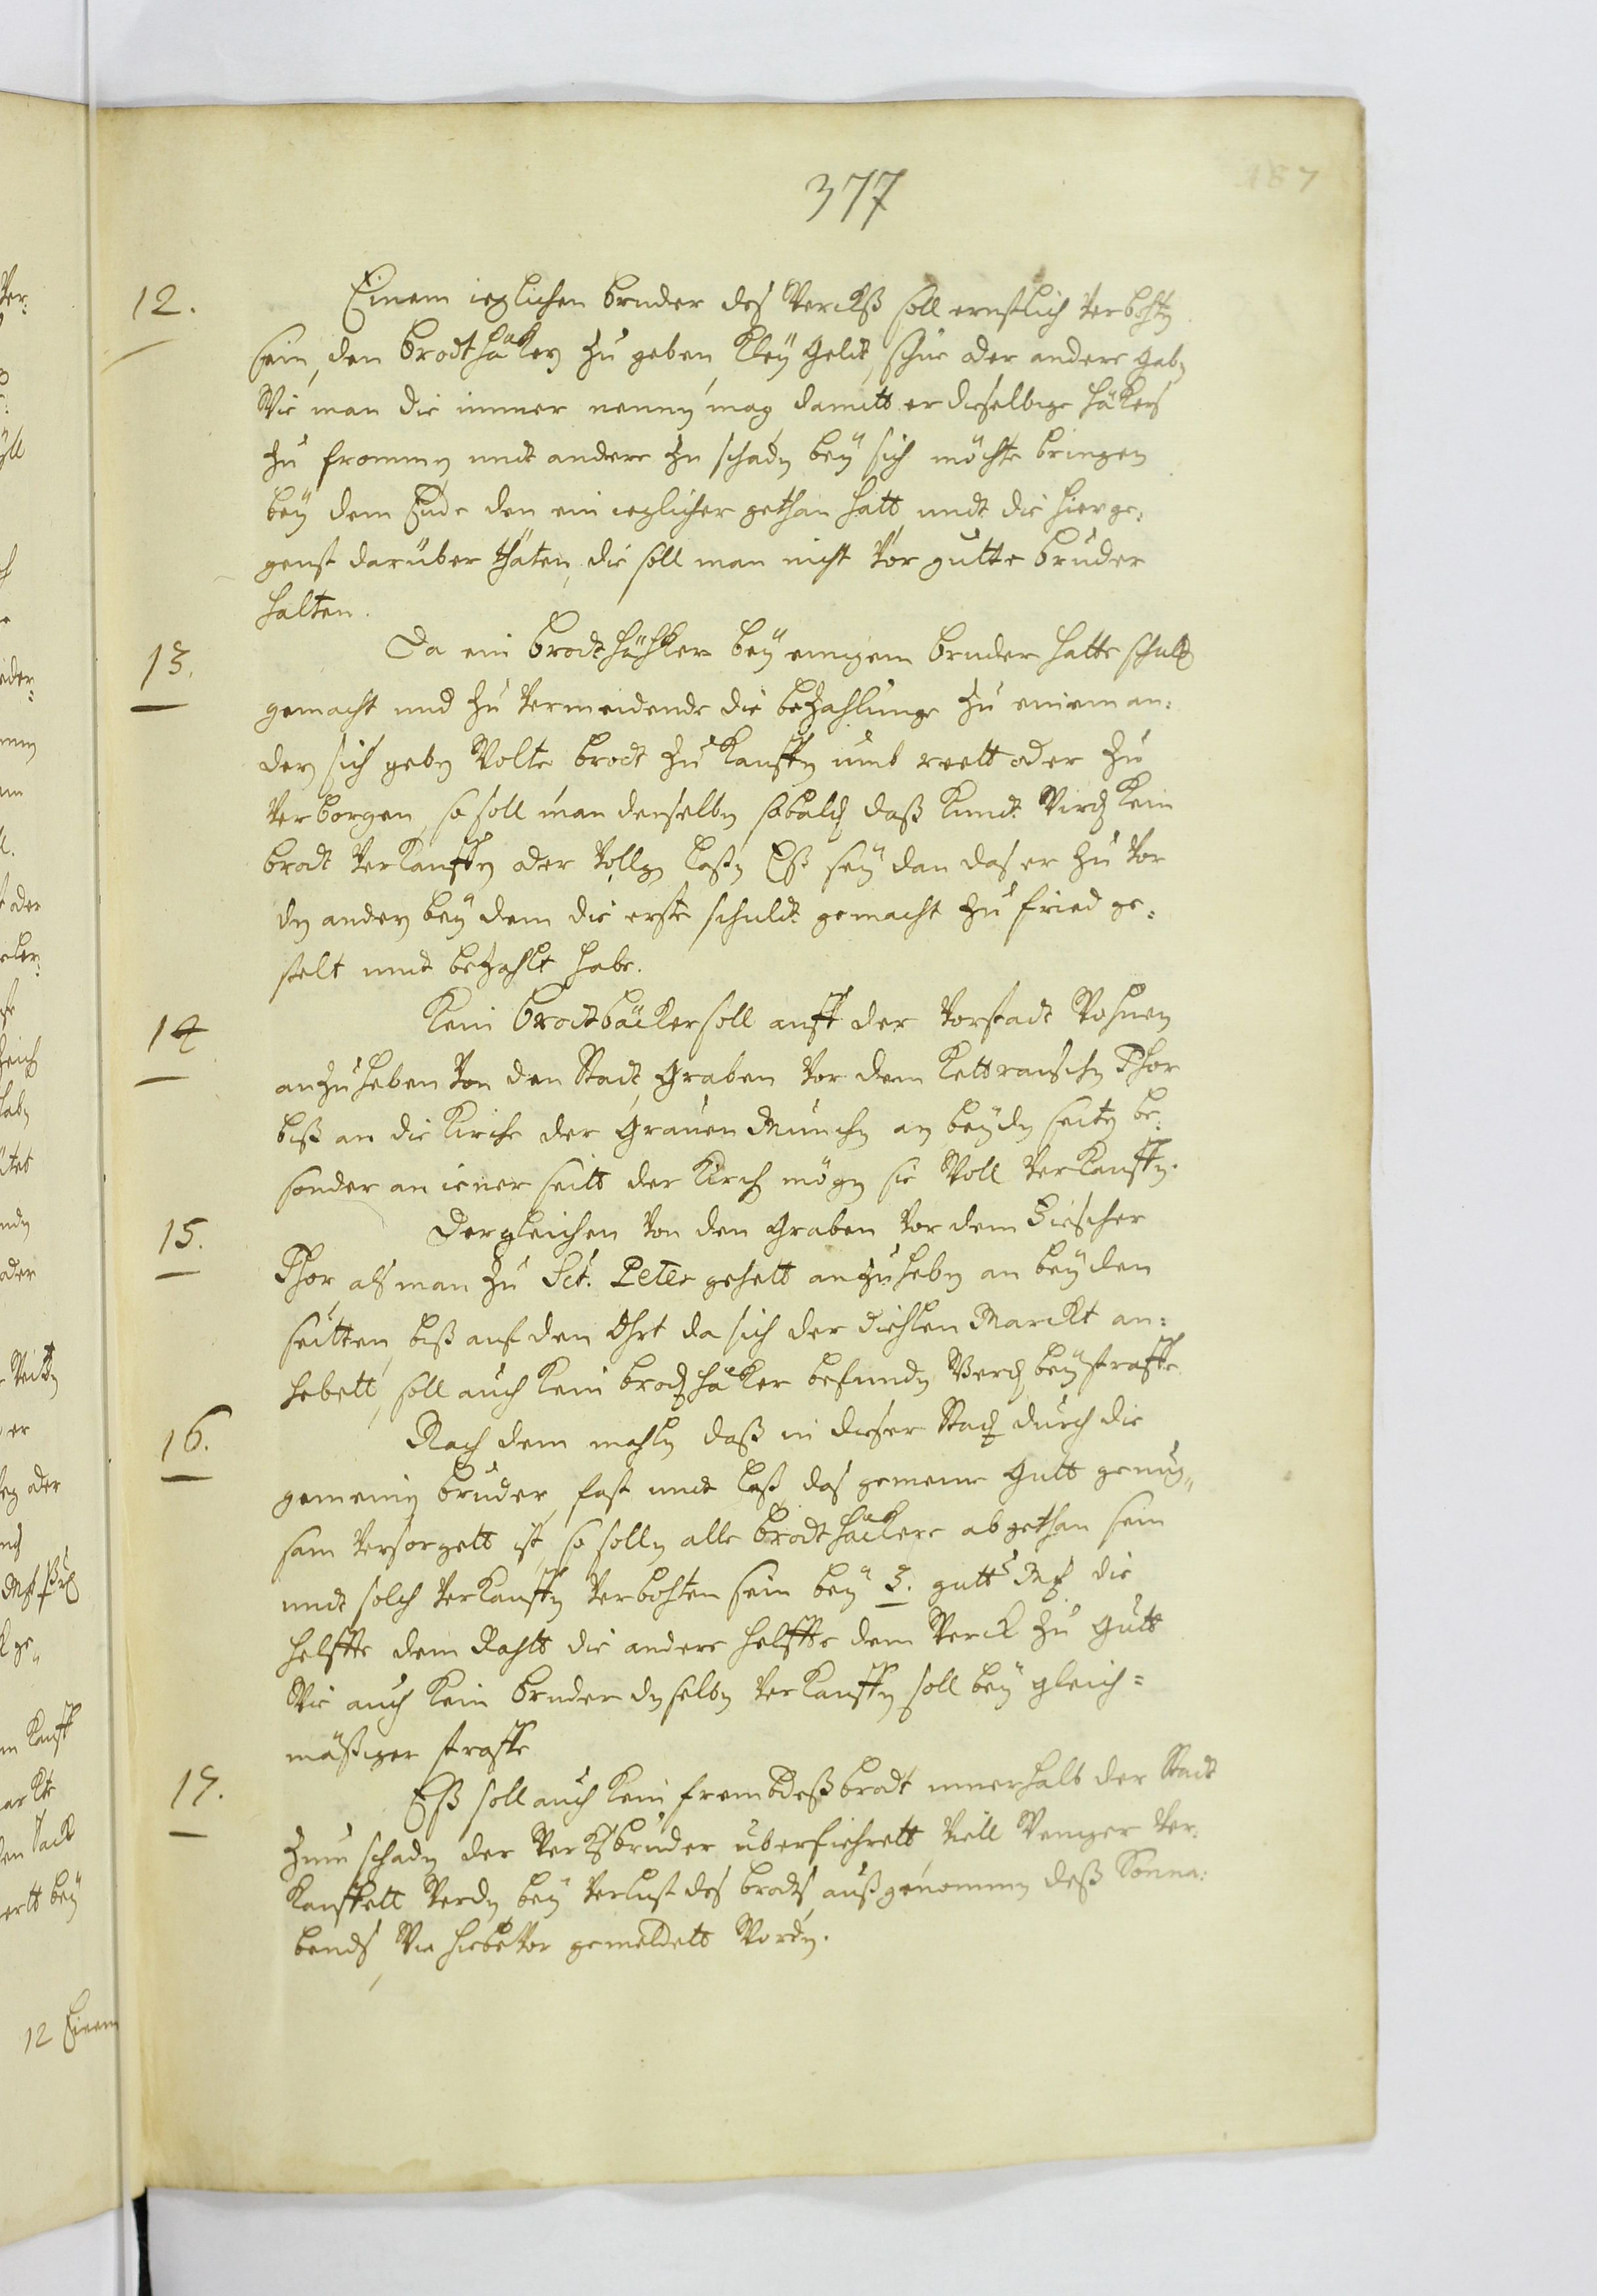 377
187
12. Einem ieglichen bruder des Wercks soll ernstlich verbohtn
sein, den brodt häkern zu geben, kley geldt, schue oder andere gabn
Wie man die immer nennen mag damitt er dieselbige häkers
zu frommen undt andere zu schadn bey sich möchte bringen
bey dem Eude den ein ieglicher gethan hatt undt die hierge:
genst darüber thäten, die soll man nicht vor gutte bruder
halten.
13. Da ein brodt hächker bey einigem bruder hatte schuldt
gemacht und zu vermeidende die bezahlunge zu einem an:
dern sich gebn Wolte brodt zu kauffen umb reett oder zu
verborgen, so soll man denselbn sobaldt daß kundt Wirdt kein
brodt verkauffen oder vollgen laßn Eß sey dan das er zu vor
dn andern bey dem die erste schuldt gemacht zu fried ge:
stelt undt bezahlt habe.
14 Kein brodtbäcker soll auff der vorstadt Wohnen
anzuheben von den Stadt Graben vor dem Kettraischn Thor
biß an die Kirche der Grauen Münchn an beydn seitn be:
sonder an iener seitt der Kirch mögn sie Woll verkauffn.
15. Dergleichen von den Graben vor dem Ziescher
Thor als man zu Sct. Peter gehett anzuhebn an beyden
seitten, biß auf den Ohrt da sich der diehlen Marckt an:
hebett, soll auch kein brodt häker befundn Werdn bey straffe
16. Nach dem mahln daß in dieser Stadt durch die
gemeinen bruder, fast undt laß das gemeine Gutt genug„
sam versorgett ist, so solln alle brodt häckere abgethan sein
undt solch verkauffn verbohten sein bey 3. gutte Mk die
helffte dem Rahtt die andere helffte dem Werck zu gutt
Wie auch kein bruder dn selbn verkauffn soll bey gleich=
mäßiger straffe
17. Eß soll auch kein frembdeß brodt innerhalb der Stadt
zum schadn der Werckbruder uberfiehrett viell Weniger ver:
kauffett Werdn bey verlust des brodts außgenommen deß Sonna:
bends, Wie hiebevor gemeldett Wordn.
12 Einem